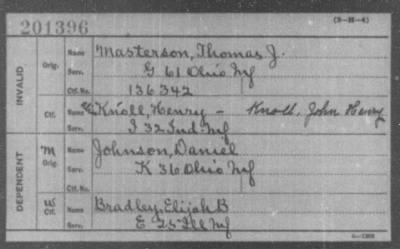 201396 (3-III-4)
INVALID Orig. Name Masterson, Thomas J.
Serv. G 61 Ohio Inf
Ctf. No. 136342
Ctf. Name Knoll, Henry - Knoll, John Henry
Serv. I 32 Ind Inf
DEPENDENT M Orig. Name Johnson, Daniel
Serv. K 36 Ohio Inf
Ctf. No.
W Ctf. Name Bradley, Elijah B
Serv. E 25 Ill Inf